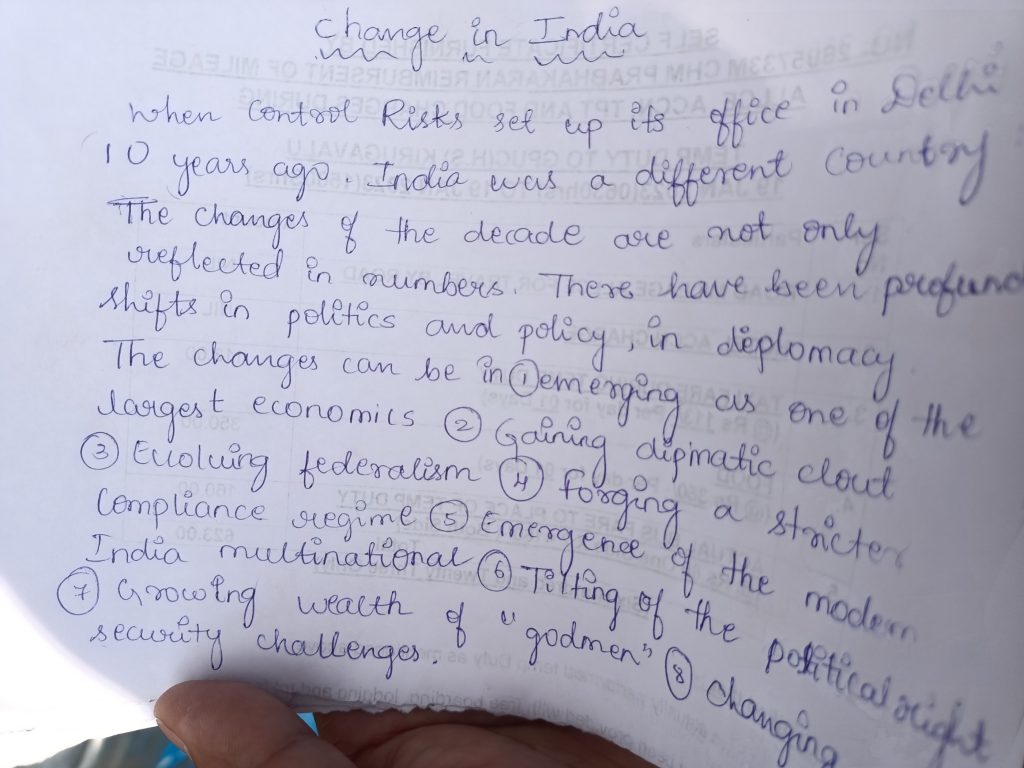 Change in India
When Control Risks set up its office in Delhi
10 years ago. India was a different country
The changes of the decade are not only
reflected in numbers. There have been profund
shifts in politics and policy, in diplomacy.
The changes can be in ① emerging as one of the
largest economics ② Gaining dipimatic clout
③ Evolving federalism ④ Forging a stricter
Compliance regime ⑤ Emergence of the modern
India multinational ⑥ Tilting of the political right
⑦ Growing wealth of "godmen" ⑧ Changing
security challenges.